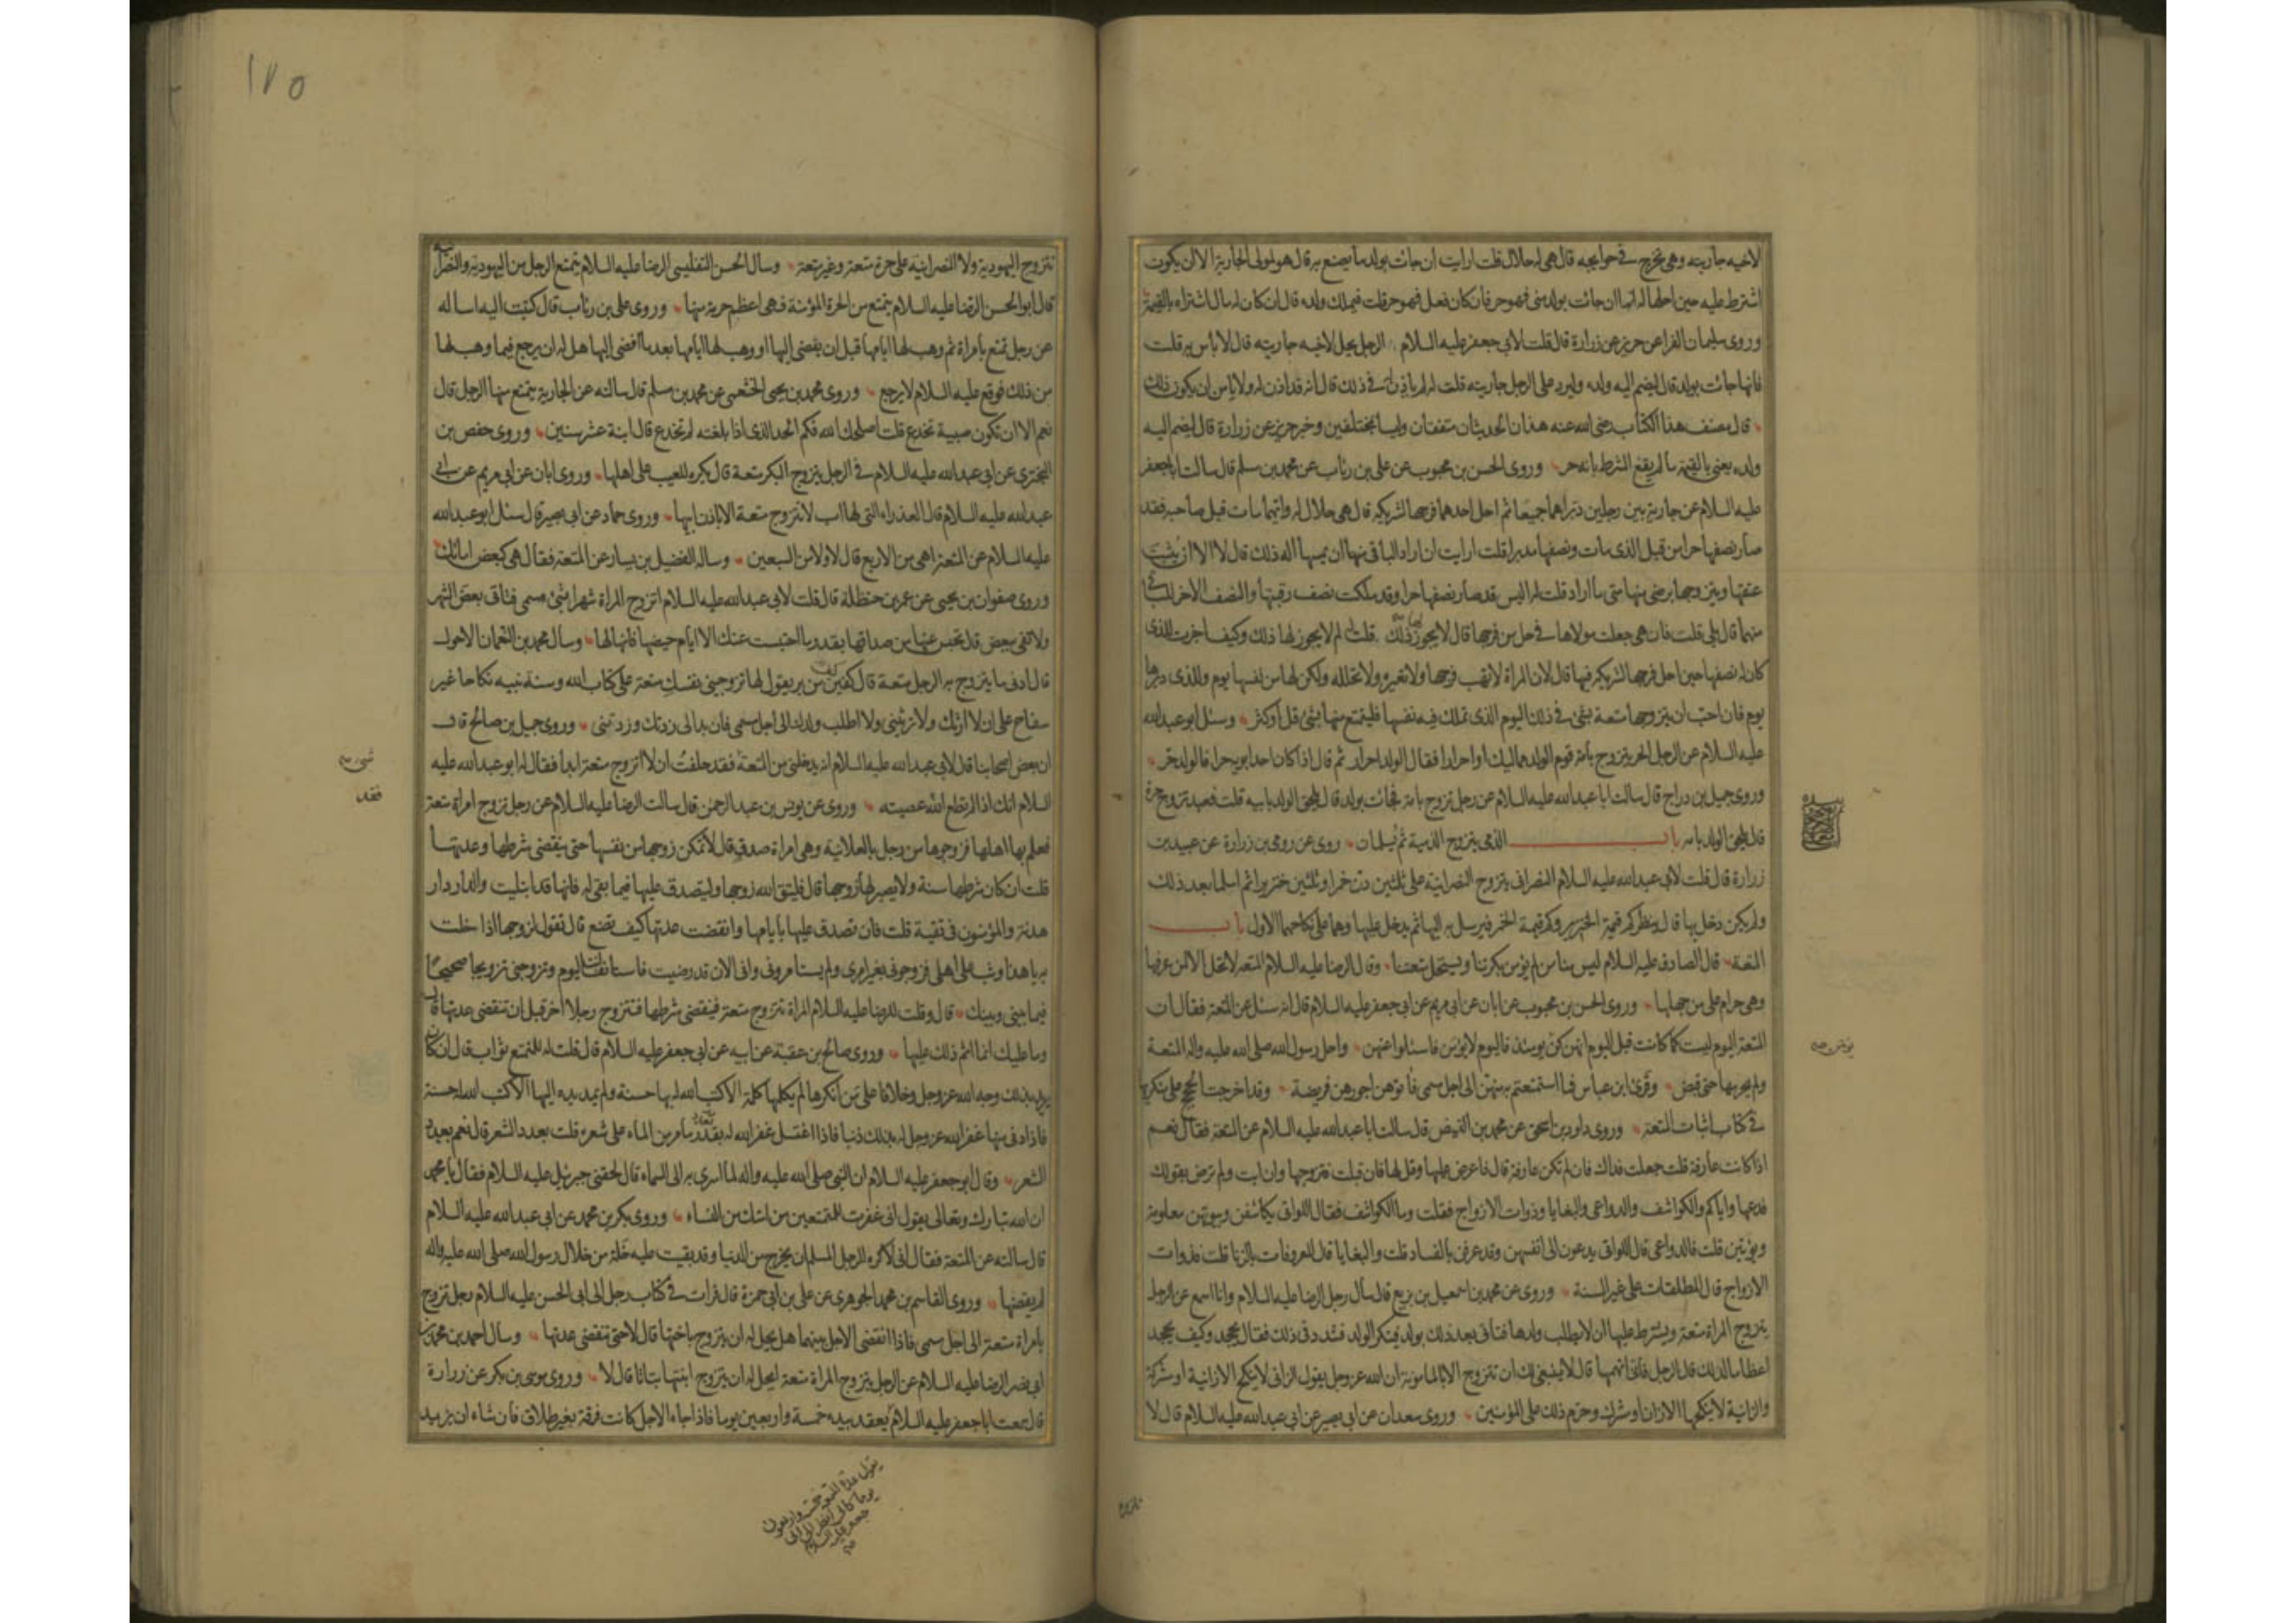 لاخيه جاريته وهي تخرج في حوايجه قال هي له حلال قلت ارايت ان جاءت بولد ما يصنع به قال هو لمولى الجارية الا ان يكون
اشترط عليه حين احلها له انها ان جائت بولد مني فهو حر فان كان فعل فهو حر قلت فيملك ولده قال ان كان له مال اشتراه بالقيمة
وروى سليمان الفرا عن حريز عن زرارة قال قلت لابي جعفر عليه السلام الرجل يحل لاخيه جاريته قال لا باس به قلت
فانها جائت بولد قال ليضم اليه ولده وليرد على الرجل جاريته قلت له لم ياذن له في ذلك قال انه قد اذن له ولا ياس ان يكون ذلك
قال مصنف هذا الكتاب رضي الله عنه هذان الحديثان متفقان وليسا بمختلفين وخبر حريز عن زرارة قال ليضم اليه
ولده يعني بالقيمة ما لم يقع الشرط بانه حر وروى الحسن بن محبوب عن علي بن رئاب عن محمد بن مسلم قال سالت ابا جعفر
عليه السلام عن جارية بين رجلين دبراها جميعا ثم احل احدهما فرجها لشريكه قال هي حلال له وايهما مات قبل صاحبه فقد
صار نصفها حرا من قبل الذي مات ونصفها مدبرا قلت ارايت ان اراد الباقي منهما ان يمسها اله ذلك قال لا الا ان يثبت
عتقها ويتزوجها برضى منها متى ما اراد قلت له اليس قد صار نصفها حرا وقد ملكت نصف رقبتها والنصف الاخر للباقي
منهما قال بلى قلت فان هي جعلت مولاها في حل من فرجها قال لا يجوز ذلك قلت له لم لا يجوز لها ذلك وكيف اجزت للذي
كان له نصفها حين احل فرجها لشريكه فيها قال لان المراة لا تهب فرجها ولا تعيره ولا تحلله ولكن لها من نفسها يوم وللذي دبرها
يوم فان احب ان يتزوجها متعة بشئ في ذلك اليوم الذي تملك فيه نفسها فليتمتع منها بشئ قل او كثر وسئل ابو عبد الله
عليه السلام عن الرجل الحر يتزوج بامة قوم الولد مماليك او احرار فقال الولد احرار ثم قال اذا كان احد ابويه حرا فالولد حر
وروى جميل بن دراج قال سالت ابا عبد الله عليه السلام عن رجل تزوج بامة فجائت بولد قال يلحق الولد بابيه قلت فعبد تزوج حرة
قال يلحق الولد بامه باب الذمي يتزوج الذمية ثم يسلمان روى عن رومي بن زرارة عن عبيد بن
زرارة قال قلت لابي عبد الله عليه السلام النصراني يتزوج النصرانية على ثلثين دن خمرا وثلثين خنزيرا ثم اسلما بعد ذلك
ولم يكن دخل بها قال ينظر كم قيمة الخنزير وكم قيمة الخمر فيرسل به اليها ثم يدخل عليها وهما على نكاحهما الاول باب
المتعة قال الصادق عليه السلام ليس منا من لم يؤمن بكرتنا ويستحل متعتنا وقال الرضا عليه السلام المتعه لا تحل الا لمن عرفها
وهي حرام على من جهلها وروى الحسن بن محبوب عن ابان عن ابي مريم عن ابي جعفر عليه السلام قال انه سئل عن المتعة فقال ان
المتعة اليوم ليست كما كانت قبل اليوم انهن كن يومئذ يؤمن فاليوم لا يؤمن فاسئلوا عنهن واحل رسول الله صلى الله عليه واله المتعة
ولم يحرمها حتى قبض وقرئ ابن عباس فما استمتعتم به منهن الى اجل مسمى فاتوهن اجورهن فريضة وقد اخرجت الحجج على منكريها
في كتاب اثبات المتعة وروى داود بن اسحق عن محمد بن الفيض قال سالت ابا عبد الله عليه السلام عن المتعة فقال نعم
اذا كانت عارفة قلت جعلت فداك فان لم تكن عارفة قال فاعرض عليها وقل لها فان قبلت فتزوجها وان ابت ولم ترض بقولك
فدعها واياكم والكواشف والدواعي والبغايا وذوات الازواج فقلت وما الكواشف فقال اللواتي يكاشفن وبيوتهن معلومة
ويؤتين قلت فالدواعي قال اللواتي يدعون الى انفسهن وقد عرفن بالفساد قلت والبغايا قال المعروفات بالزنا قلت فذوات
الازواج قال المطلقات على غير السنة وروى عن محمد بن اسمعيل بن بزيع قال سأل رجل الرضا عليه السلام وانا اسمع عن الرجل
يتزوج المراة متعة ويشترط عليها ان لا يطلب ولدها فتاتي بعد ذلك بولد فينكر الولد فشدد في ذلك فقال يجحد وكيف يجحد
اعظاما لذلك قال الرجل فاني اتهمها قال لا ينبغي لك ان تتزوج الا بالمامونة ان الله عز وجل يقول الزاني لا ينكح الا زانية او مشركة
والزانية لا ينكحها الا زان او مشرك وحرم ذلك على المؤمنين وروى سعدان عن ابي بصير عن ابي عبد الله عليه السلام قال لا
يؤمن صح
١٧٥
تتزوج اليهودية ولا النصرانية على حرة متعة وغير متعة وسال الحسن التفليسي الرضا عليه السلام يتمتع الرجل من اليهودية والنصرانية
قال ابو الحسن الرضا عليه السلام يتمتع من الحرة المؤمنة فهي اعظم حرمة منها وروى علي بن رئاب قال كتبت اليه اساله
عن رجل تمتع بامراة ثم وهب لها ايامها قبل ان يفضي اليها او وهب لها ايامها بعد ما افضى اليها هل له ان يرجع فيما وهب لها
من ذلك فوقع عليه السلام لا يرجع وروى محمد بن يحيى الخثعمي عن محمد بن مسلم قال سالته عن الجارية يتمتع منها الرجل قال
نعم الا ان تكون صبية تخدع قلت اصلحك الله فكم الحد الذي اذا بلغته لم تخدع قال ابنة عشر سنين وروى حفص بن
البختري عن ابي عبد الله عليه السلام في الرجل يتزوج البكر متعة قال يكره للعيب على اهلها وروى ابان عن ابي مريم عن ابي
عبد الله عليه السلام قال العذراء التي لها اب لا تتزوج متعة الا باذن ابيها وروى حماد عن ابي بصير قال سئل ابو عبد الله
عليه السلام عن المتعة اهي من الاربع قال لا ولا من السبعين وساله الفضيل بن يسار عن المتعة فقال هي كبعض امائك
وروى صفوان بن يحيى عن عمر بن حنظلة قال قلت لابي عبد الله عليه السلام اتزوج المراة شهرا بشئ مسمى فتاتي بعض الشهر
ولا تفي ببعض قال تحبس عنها من صداقها بقدر ما احتبست عنك الا ايام حيضها فانها لها وسال محمد بن النعمان الاحول
قال ادنى ما يتزوج به الرجل متعة قال كفين من بر يقول لها تزوجيني نفسك متعة على كتاب الله وسنة نبيه نكاحا غير
سفاح على ان لا ارثك ولا ترثيني ولا اطلب ولدك الى اجل مسمى فان بدا لي زدتك وزدتني وروى جميل بن صالح قال
ان بعض اصحابنا قال لابي عبد الله عليه السلام انه يدخلني من المتعة فقد حلفت ان لا اتزوج متعة ابدا فقال له ابو عبد الله عليه
السلام انك اذا لم تطع الله عصيته وروى عن يونس بن عبد الرحمن قال سالت الرضا عليه السلام عن رجل تزوج امراة متعة
فعلم بها اهلها فزوجوها من رجل بالعلانية وهي امراة صدق قال لا تمكن زوجها من نفسها حتى ينقضي شرطها وعدتها
قلت ان كان شرطها سنة ولا يصبر لها زوجها قال فليتق الله زوجها وليتصدق عليها فيما بقي له فانها قد ابتليت والدار دار
هدنة والمؤمنون في تقية قلت فان تصدق عليها بايامها وانقضت عدتها كيف تصنع قال تقول لزوجها اذا خلت
به يا هذا وثب علي اهلي فزوجوني بغير امري ولم يستامروني واني الان قد رضيت فاستانف انت اليوم وتزوجني تزويجا صحيحا
فيما بيني وبينك قال وقلت للرضا عليه السلام المراة تتزوج متعة فينقضي شرطها فتتزوج رجلا اخر قبل ان تنقضي عدتها قال
وما عليك انما اثم ذلك عليها وروى صالح بن عقبة عن ابيه عن ابي جعفر عليه السلام قال قلت له للمتمتع ثواب قال ان كان
يريد بذلك وجه الله عز وجل وخلافا على من انكرها لم يكلمها كلمة الا كتب الله له بها حسنة ولم يمد يده اليها الا كتب الله له حسنة
فاذا دنى منها غفر الله عز وجل له بذلك ذنبا فاذا اغتسل غفر الله له بقدر ما مر من الماء على شعره قلت بعدد الشعر قال نعم بعدد
الشعر وقال ابو جعفر عليه السلام ان النبي صلى الله عليه واله لما اسري به الى السماء قال لحقني جبرئيل عليه السلام فقال يا محمد
ان الله تبارك وتعالى يقول اني غفرت للمتمتعين من امتك من النساء وروى بكر بن محمد عن ابي عبد الله عليه السلام
قال سالته عن المتعة فقال اني لاكره للرجل المسلم ان يخرج من الدنيا وقد بقيت عليه خلة من خلال رسول الله صلى الله عليه واله
لم يقضها وروى القاسم بن محمد الجوهري عن علي بن ابي حمزة قال قرات في كتاب رجل الى ابي الحسن عليه السلام رجل تزوج
بامراة متعة الى اجل مسمى فاذا انقضى الاجل بينهما هل يحل له ان يتزوج باختها قال لا حتى تنقضي عدتها وسال احمد بن محمد بن
ابي نصر الرضا عليه السلام عن الرجل يتزوج المراة متعة ايحل له ان يتزوج ابنتها بتاتا قال لا وروى موسى بن بكر عن زرارة
قال سمعت ابا جعفر عليه السلام يعقد بيده خمسة واربعين يوما فاذا جاء الاجل كانت فرقة بغير طلاق فان شاء ان يزيد
شئ صح
فقد
يقول عدة المتعة خمسة واربعون
يوما كاني انظر الى ابي
جعفر عليه السلام
صح